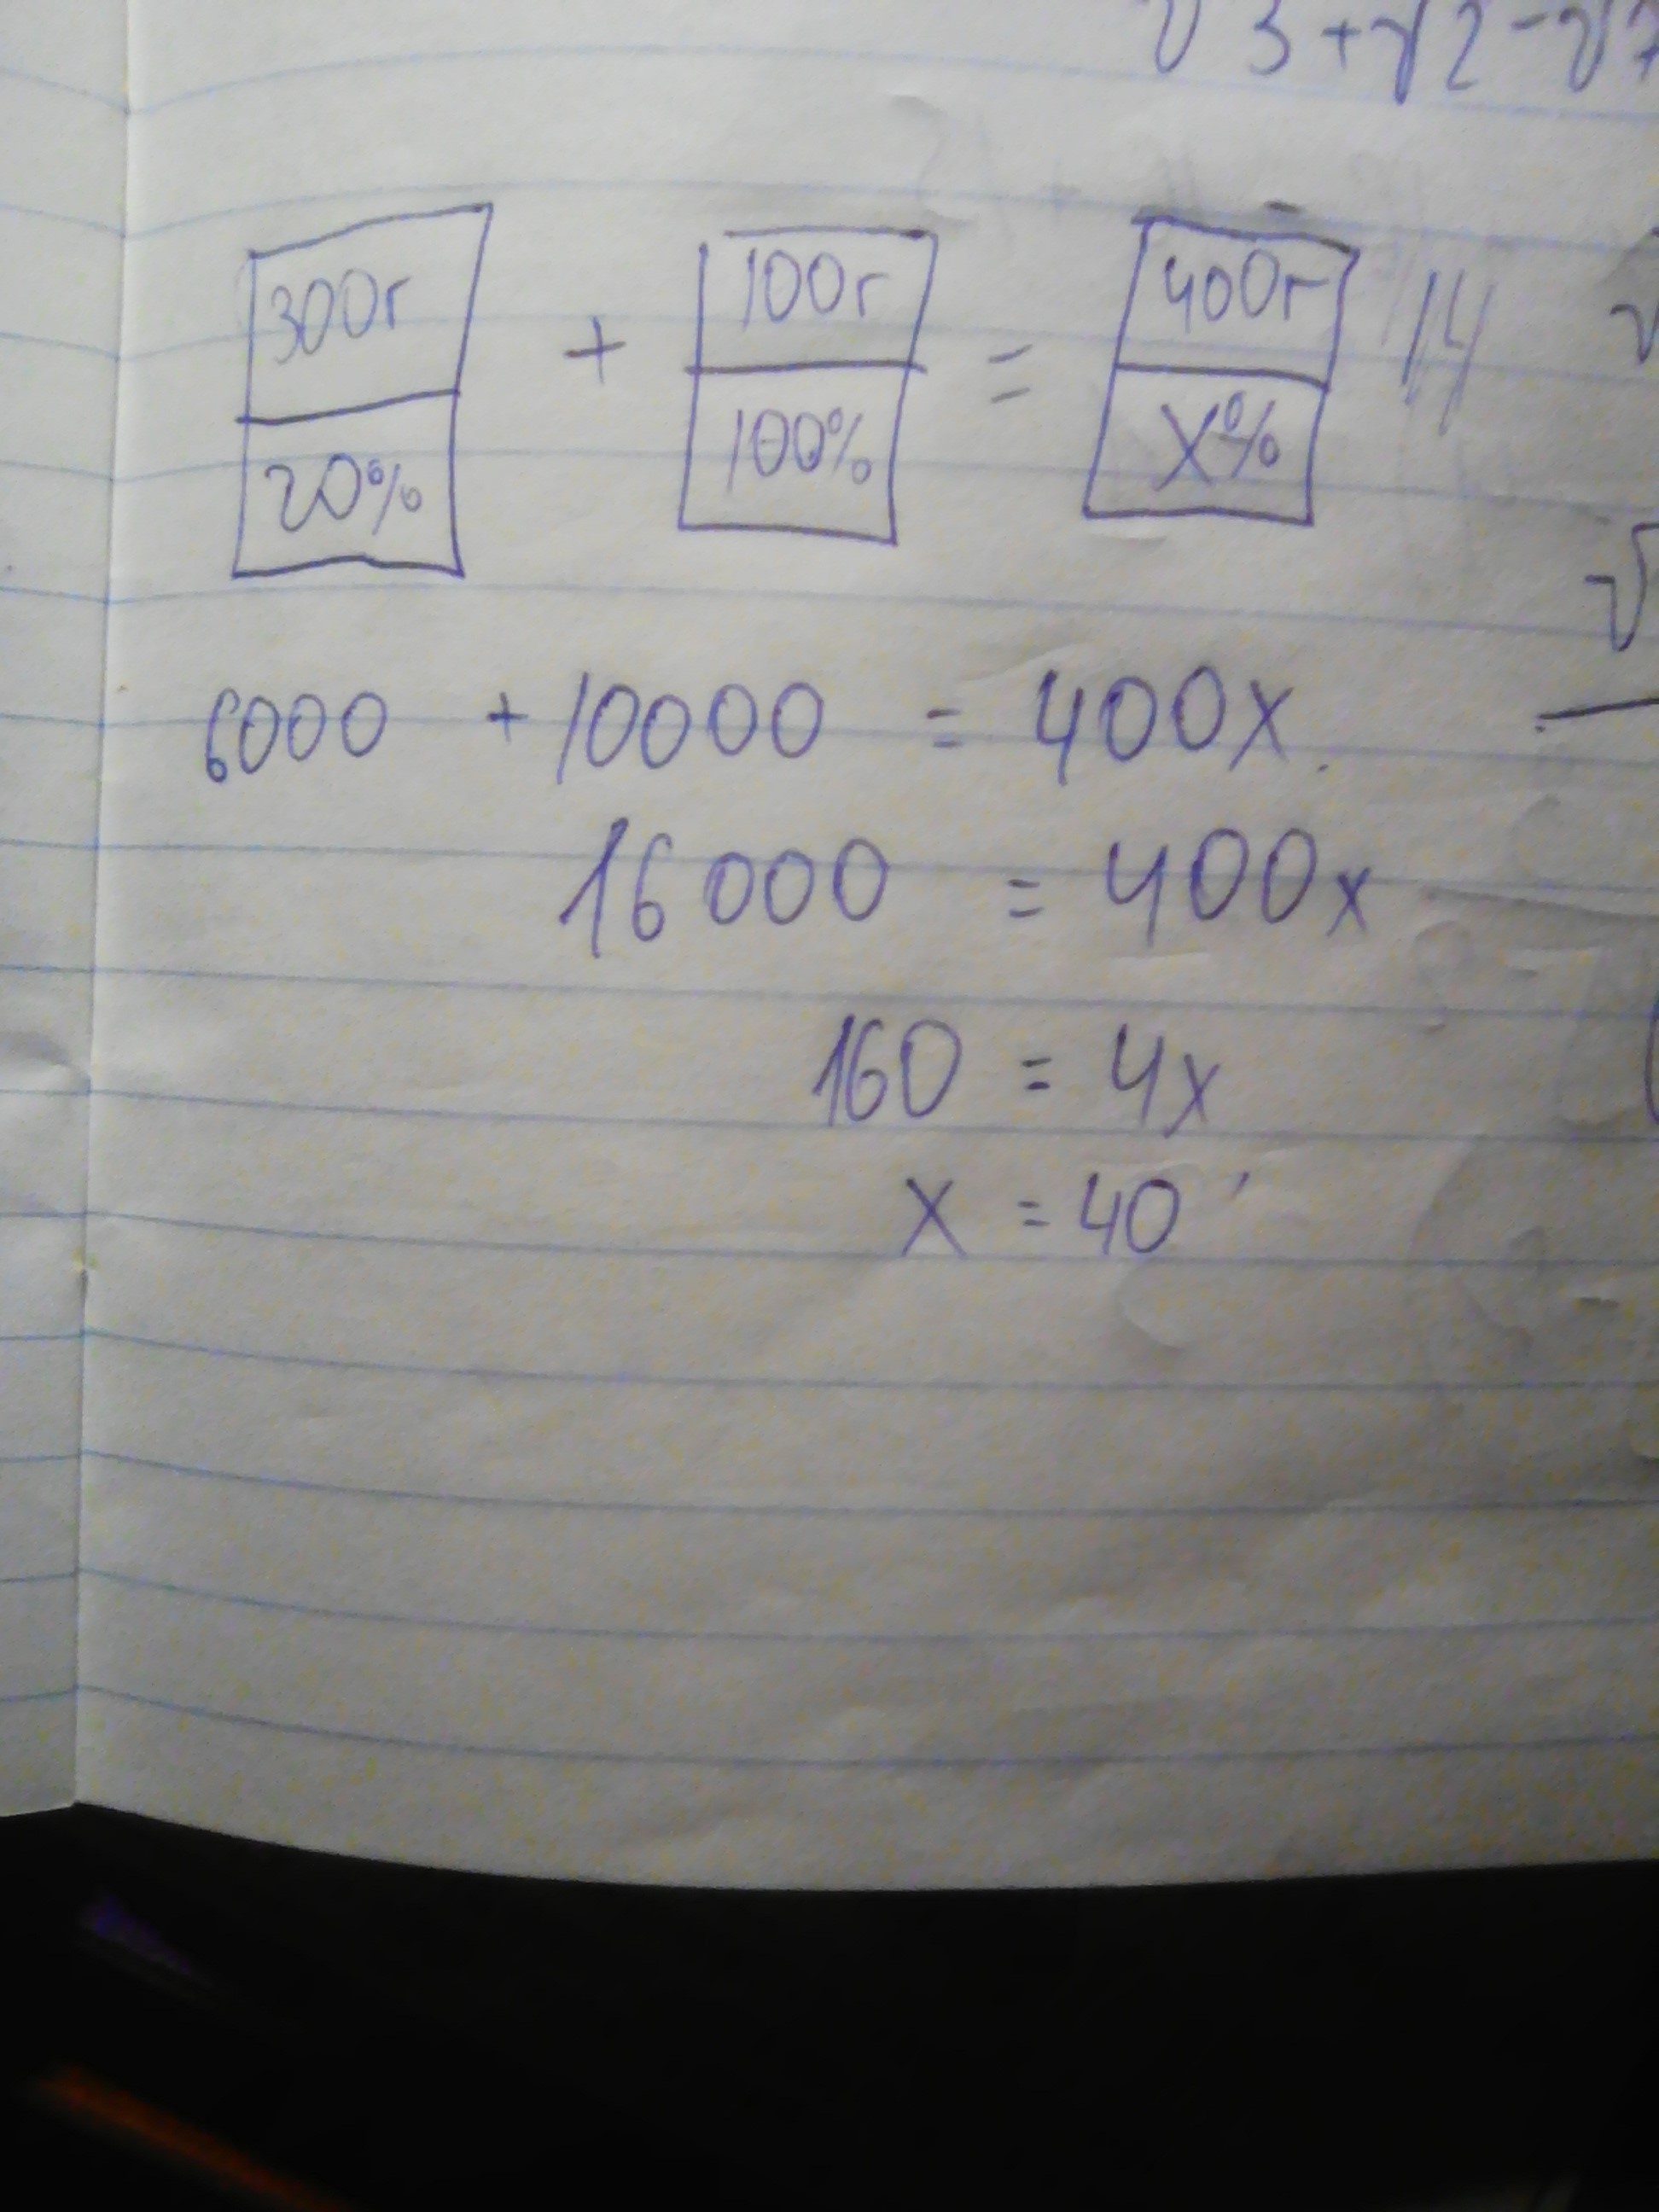 √3+√2-√7
300г + 100г = 400г
20% 100% X%
6000 + 10000 = 400x
16000 = 400x
160 = 4x
x = 40